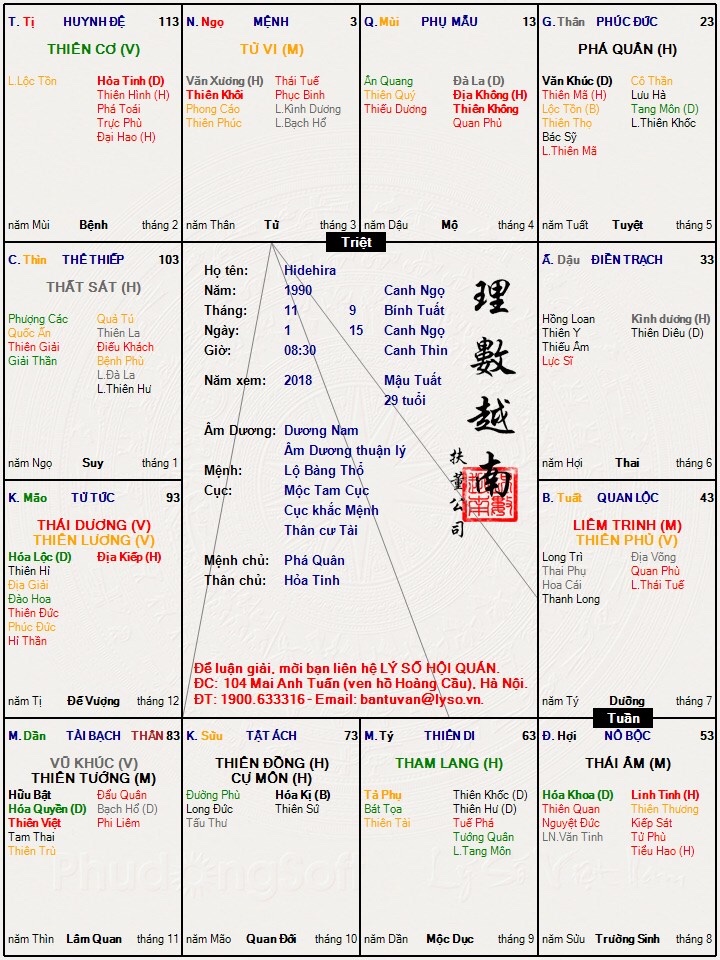 T. Tị HUYNH ĐỆ 113
THIÊN CƠ (V)
L.Lộc Tồn
Hỏa Tinh (D)
Thiên Hình (H)
Phá Toái
Trực Phù
Đại Hao (H)
năm Mùi Bệnh tháng 2
N. Ngọ MỆNH 3
TỬ VI (M)
Văn Xương (H)
Thiên Khôi
Phong Cáo
Thiên Phúc
Thái Tuế
Phục Binh
L.Kình Dương
L.Bạch Hổ
năm Thân Tử tháng 3
Q. Mùi PHỤ MẪU 13
Ân Quang
Thiên Quý
Thiếu Dương
Đà La (D)
Địa Không (H)
Thiên Không
Quan Phủ
năm Dậu Mộ tháng 4
G. Thân PHÚC ĐỨC 23
PHÁ QUÂN (H)
Văn Khúc (D)
Thiên Mã (H)
Lộc Tồn (B)
Thiên Thọ
Bác Sỹ
L.Thiên Mã
Cô Thần
Lưu Hà
Tang Môn (D)
L.Thiên Khốc
năm Tuất Tuyệt tháng 5
Triệt
C. Thìn THÊ THIẾP 103
THẤT SÁT (H)
Phượng Các
Quốc Ấn
Thiên Giải
Giải Thần
Quả Tú
Thiên La
Điếu Khách
Bệnh Phù
L.Đà La
L.Thiên Hư
năm Ngọ Suy tháng 1
Họ tên: Hidehira
Năm: 1990 Canh Ngọ
Tháng: 11 9 Bính Tuất
Ngày: 1 15 Canh Ngọ
Giờ: 08:30 Canh Thìn
Năm xem: 2018 Mậu Tuất
29 tuổi
Âm Dương: Dương Nam
Âm Dương thuận lý
Mệnh: Lộ Bàng Thổ
Cục: Mộc Tam Cục
Cục khắc Mệnh
Thân cư Tài
Mệnh chủ: Phá Quân
Thân chủ: Hỏa Tinh
理數越南
扶董公司
Để luận giải, mời bạn liên hệ LÝ SỐ HỘI QUÁN.
ĐC: 104 Mai Anh Tuấn (ven hồ Hoàng Cầu), Hà Nội.
ĐT: 1900.633316 - Email: bantuvan@lyso.vn.
Ấ. Dậu ĐIỀN TRẠCH 33
Hồng Loan
Thiên Y
Thiếu Âm
Lực Sĩ
Kình dương (H)
Thiên Diêu (D)
năm Hợi Thai tháng 6
K. Mão TỬ TỨC 93
THÁI DƯƠNG (V)
THIÊN LƯƠNG (V)
Hóa Lộc (D)
Thiên Hỉ
Địa Giải
Đào Hoa
Thiên Đức
Phúc Đức
Hỉ Thần
Địa Kiếp (H)
năm Tị Đế Vượng tháng 12
B. Tuất QUAN LỘC 43
LIÊM TRINH (M)
THIÊN PHỦ (V)
Long Trì
Thai Phụ
Hoa Cái
Thanh Long
Địa Võng
Quan Phù
L.Thái Tuế
năm Tý Dưỡng tháng 7
Tuần
M. Dần TÀI BẠCH THÂN 83
VŨ KHÚC (V)
THIÊN TƯỚNG (M)
Hữu Bật
Hóa Quyền (D)
Thiên Việt
Tam Thai
Thiên Trù
Đẩu Quân
Bạch Hổ (D)
Phi Liêm
năm Thìn Lâm Quan tháng 11
K. Sửu TẬT ÁCH 73
THIÊN ĐỒNG (H)
CỰ MÔN (H)
Đường Phù
Long Đức
Tấu Thư
Hóa Kị (B)
Thiên Sứ
năm Mão Quan Đới tháng 10
M. Tý THIÊN DI 63
THAM LANG (H)
Tả Phụ
Bát Tọa
Thiên Tài
Thiên Khốc (D)
Thiên Hư (D)
Tuế Phá
Tướng Quân
L.Tang Môn
năm Dần Mộc Dục tháng 9
Đ. Hợi NÔ BỘC 53
THÁI ÂM (M)
Hóa Khoa (D)
Thiên Quan
Nguyệt Đức
LN.Văn Tinh
Linh Tinh (H)
Thiên Thương
Kiếp Sát
Tử Phù
Tiểu Hao (H)
năm Sửu Trường Sinh tháng 8